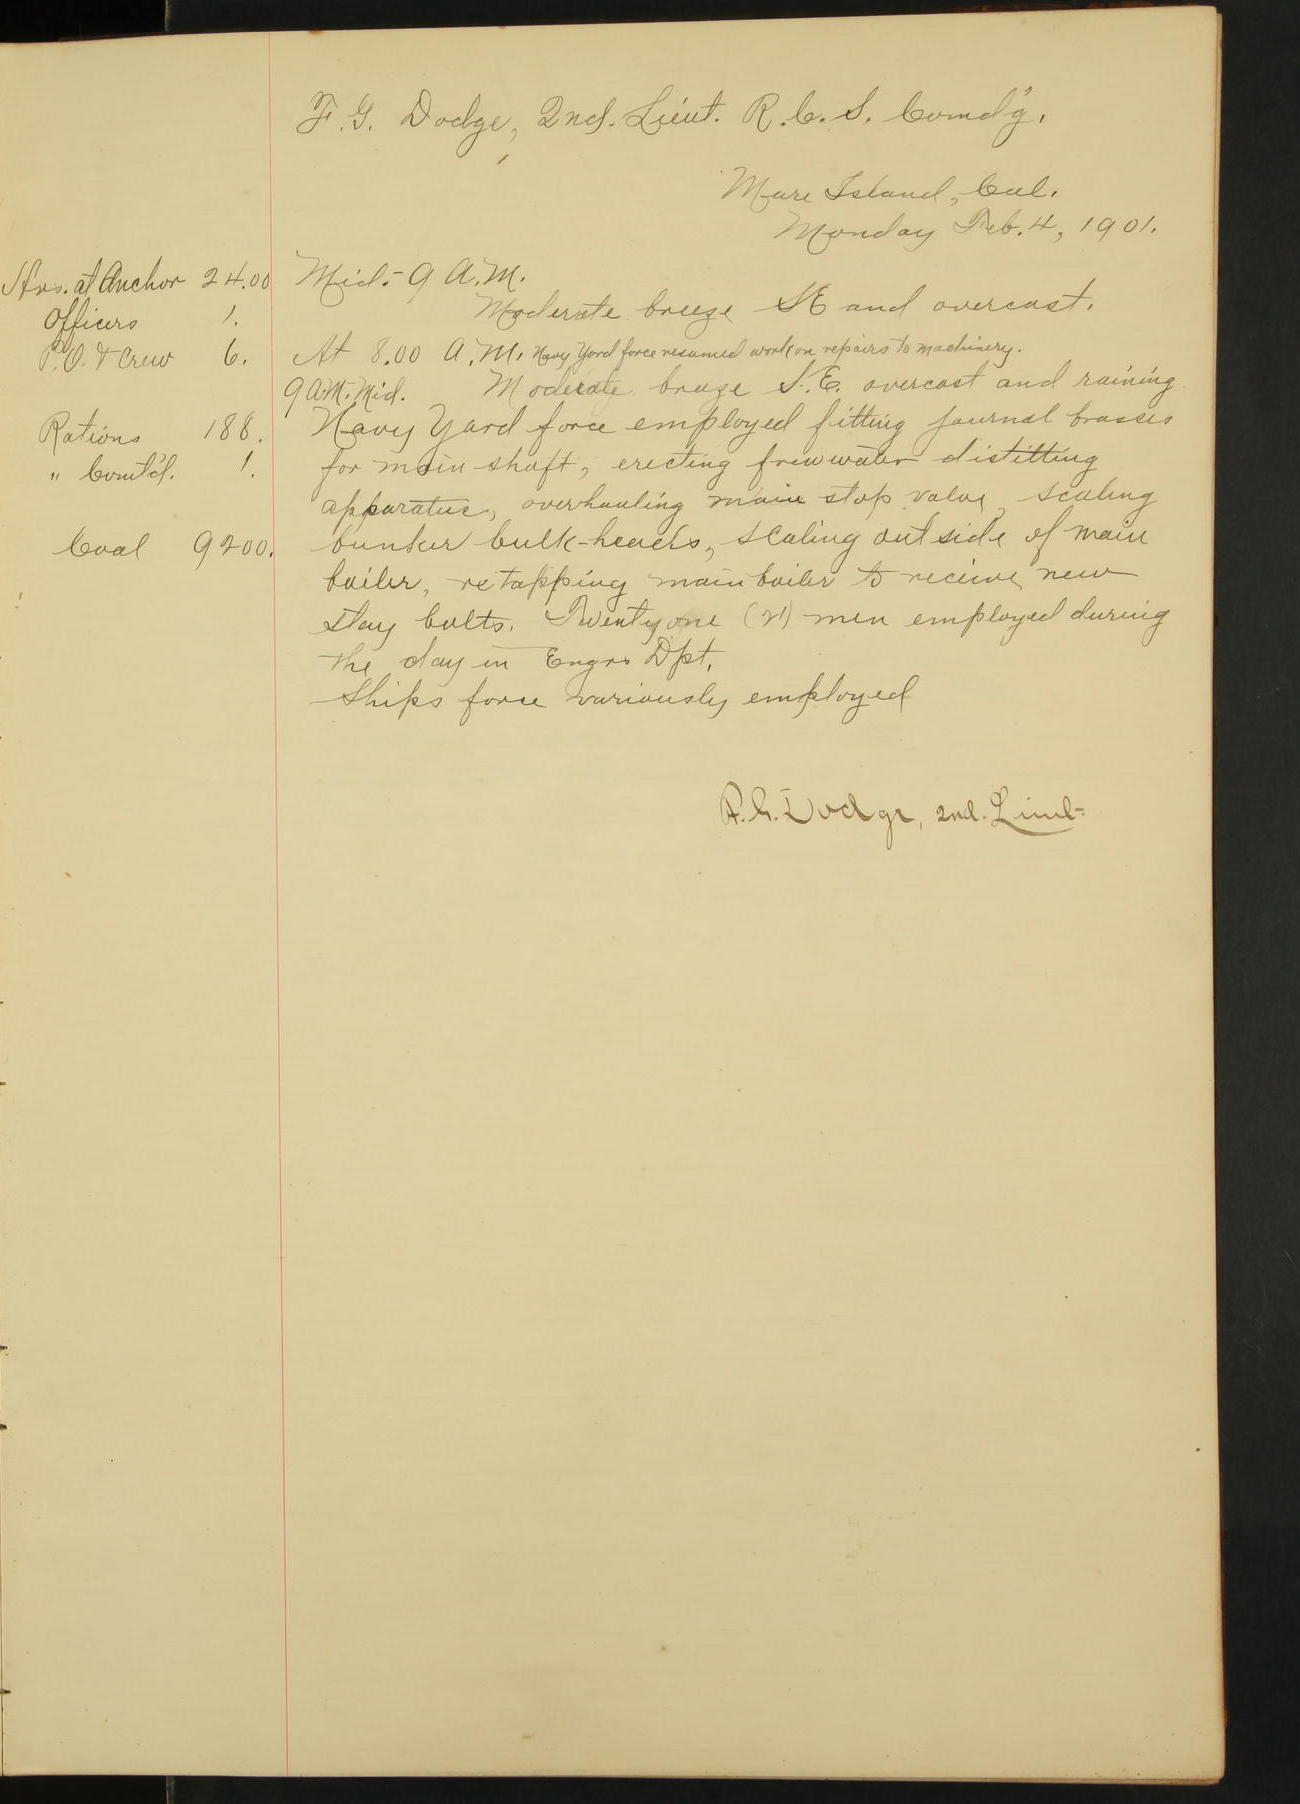 F. G. Dodge, 2nd. Lieut. R. C. S. Comd'g.
Mare Island, Cal.
Monday Feb. 4, 1901.
Hrs. at Anchor 24.00
Officers 1.
P. O. & Crew 6.
Rations 188.
" Comt'd. 1.
Coal 9200.
Mid.- 9 A.M.
Moderate breeze SE and overcast.
At 8.00 A.M. Navy Yard force resumed work on repairs to machinery.
9 A.M.-Mid. Moderate breeze S.E. overcast and raining
Navy Yard force employed fitting journal brasses
for main shaft, erecting fresh water distilling
apparatus, overhauling main stop valve, scaling
bunker bulk-heads, scaling outside of main
boiler, retapping main boiler to receive new
stay bolts. Twenty one (21) men employed during
the day in Engrs Dpt.
Ships force variously employed
F. G. Dodge, 2nd. Lieut-